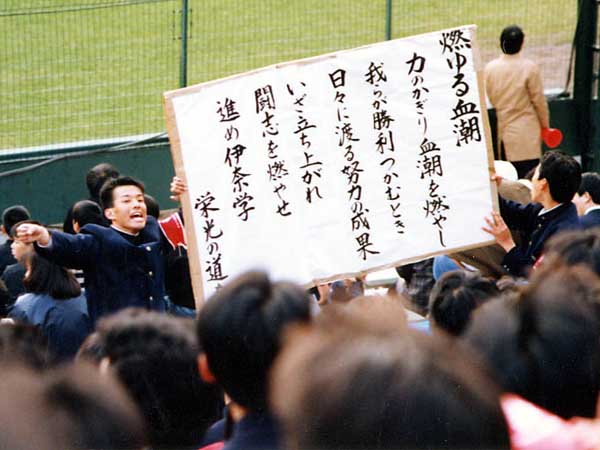 燃ゆる血潮
力のかぎり血潮を燃やし
我らが勝利つかむとき
日々に渡る努力の成果
いざ立ち上がれ
闘志を燃やせ
進め伊奈学
栄光の道